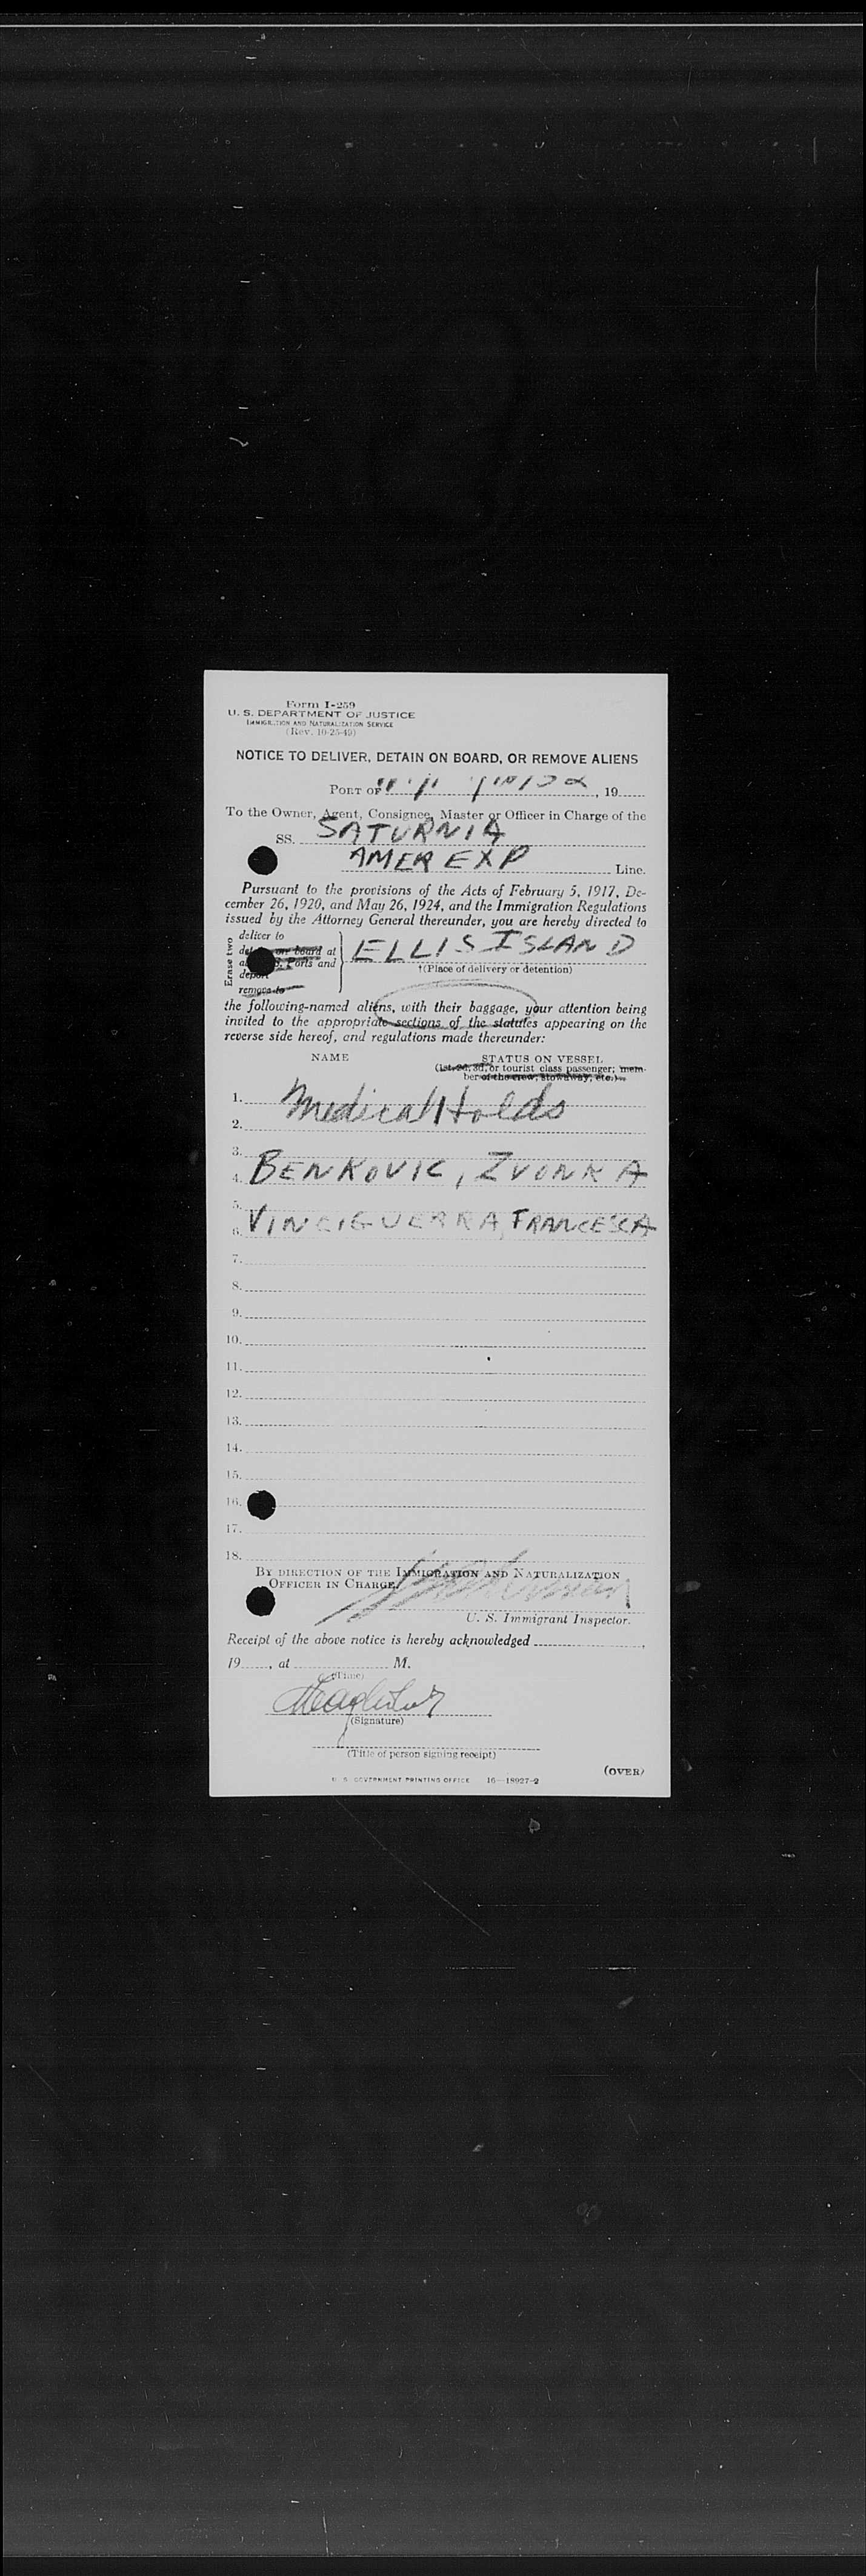 Form I-259
U. S. DEPARTMENT OF JUSTICE
IMMIGRATION AND NATURALIZATION SERVICE
(Rev. 10-25-49)
NOTICE TO DELIVER, DETAIN ON BOARD, OR REMOVE ALIENS
PORT OF , 19
To the Owner, Agent, Consignee, Master or Officer in Charge of the
SS. SATURNIA
AMER EXP Line.
Pursuant to the provisions of the Acts of February 5, 1917, De-
cember 26, 1920, and May 26, 1924, and the Immigration Regulations
issued by the Attorney General thereunder, you are hereby directed to
Erase two
deliver to
on board at
Ports and
deport
remove to
ELLIS ISLAND
†(Place of delivery or detention)
the following-named aliens, with their baggage, your attention being
invited to the appropriate sections of the statutes appearing on the
reverse side hereof, and regulations made thereunder:
NAME STATUS ON VESSEL
(1st, 2d, 3d, or tourist class passenger; mem-
ber of the crew, stowaway, etc.)
1. Medical Holds
2.
3.
4. BENKOVIC, ZVONKA
5.
6. VINCIGUERRA, FRANCESCA
7.
8.
9.
10.
11.
12.
13.
14.
15.
16.
17.
18.
BY DIRECTION OF THE IMMIGRATION AND NATURALIZATION
OFFICER IN CHARGE.
U. S. Immigrant Inspector.
Receipt of the above notice is hereby acknowledged ,
19 , at M.
(Time)
(Signature)
(Title of person signing receipt)
(OVER)
U. S. GOVERNMENT PRINTING OFFICE 16—18927-2